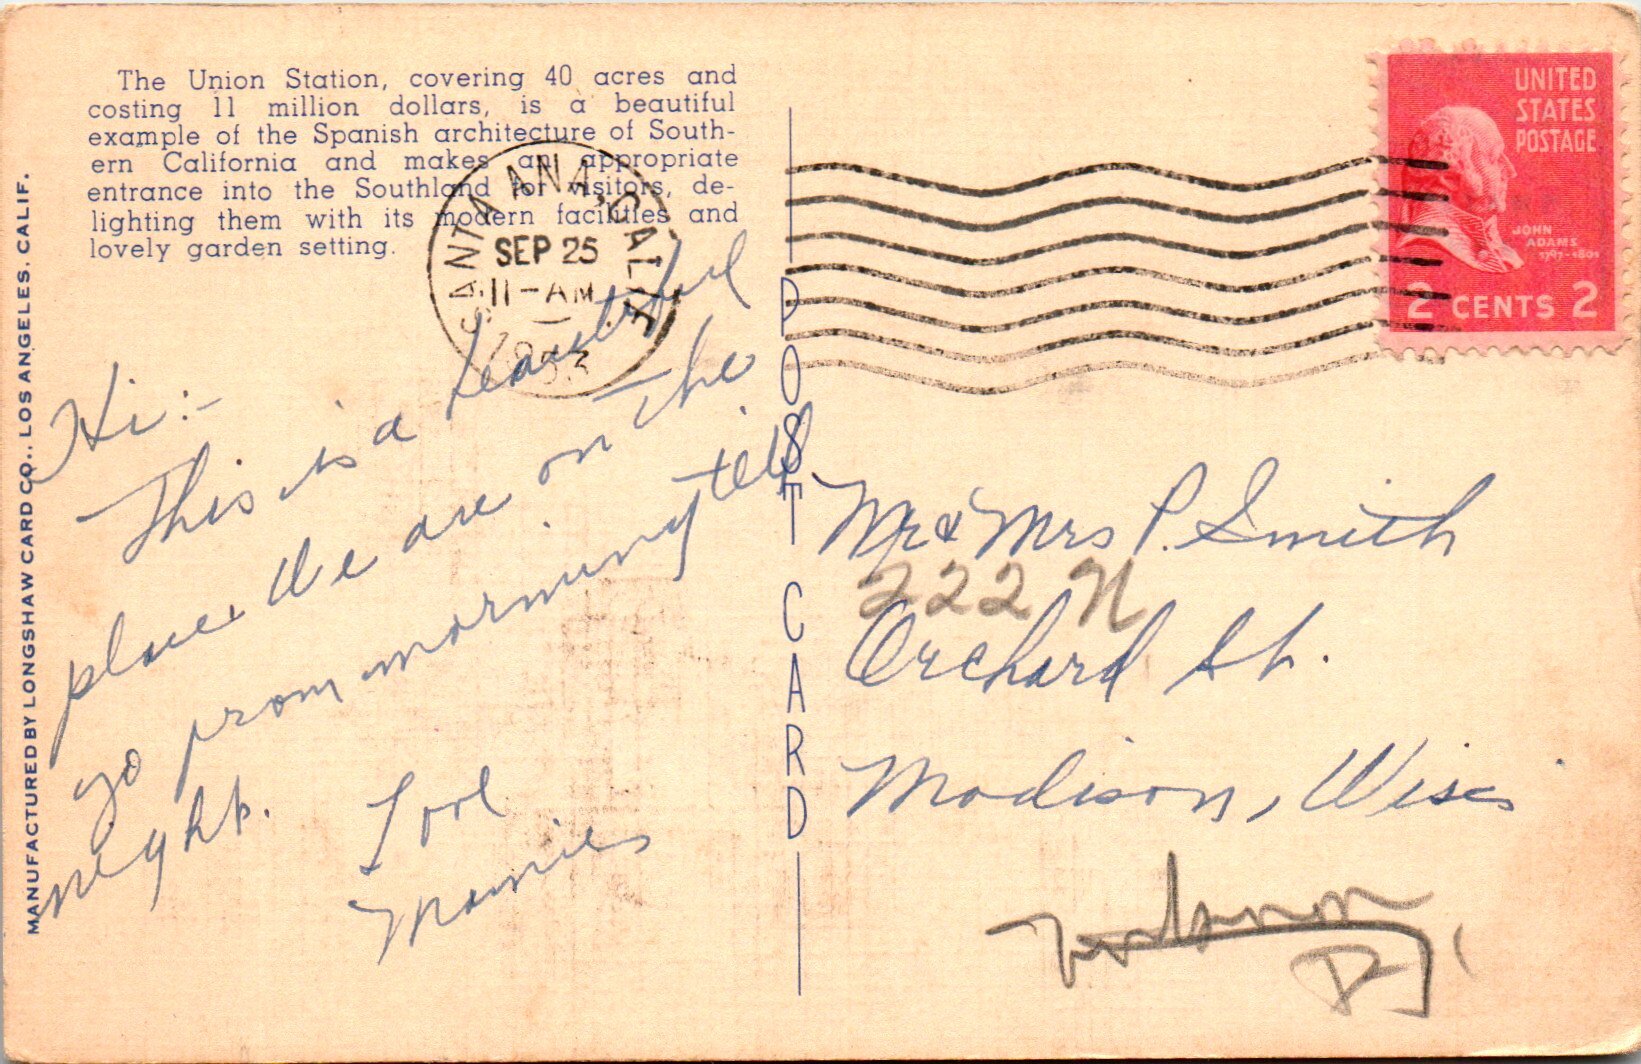 The Union Station, covering 40 acres and
costing 11 million dollars, is a beautiful
example of the Spanish architecture of South-
ern California and makes an appropriate
entrance into the Southland for visitors, de-
lighting them with its modern facilities and
lovely garden setting.
MANUFACTURED BY LONGSHAW CARD CO., LOS ANGELES, CALIF.
SANTA ANA, CALIF.
SEP 25
11-AM
UNITED
STATES
POSTAGE
JOHN
ADAMS
1797-1801
2 CENTS 2
POST CARD
Hi:-
This is a beautiful
place. We are on the
go from morning till
night.
Love
Mr & Mrs P. Smith
222 N
Orchard St.
Madison, Wis